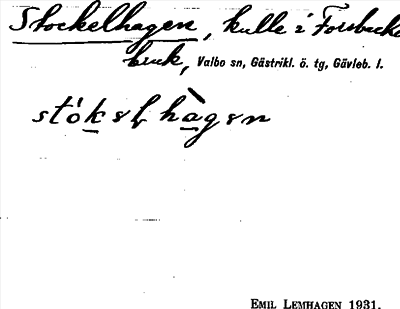 Stockelhagen, kulle i Forsbacka
bruk, Valbo sn, Gästrikl. ö. tg, Gävleb. l.
stókel hàgen
EMIL LEMHAGEN 1931.